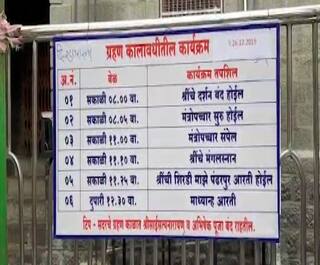 ग्रहण कालावधीतील कार्यक्रम
26.12.2019
अ.नं. वेळ कार्यक्रम तपशिल
०१ सकाळी ०८.०० वा. श्रींचे दर्शन बंद होईल
०२ सकाळी ०८.०५ वा. मंत्रोपच्चार सुरु होईल
०३ सकाळी ११.०० वा. मंत्रोपच्चार संपेल
०४ सकाळी ११.१० वा. श्रींचे मंगलस्नान
०५ सकाळी ११.२५ वा. श्रींची शिरडी माझे पंढरपुर आरती होईल
०६ दुपारी १२.३० वा. माध्यान्ह आरती
टिप - सदरचे ग्रहण काळात श्रीसाईसत्यनारायण व अभिषेक पुजा बंद राहतील.